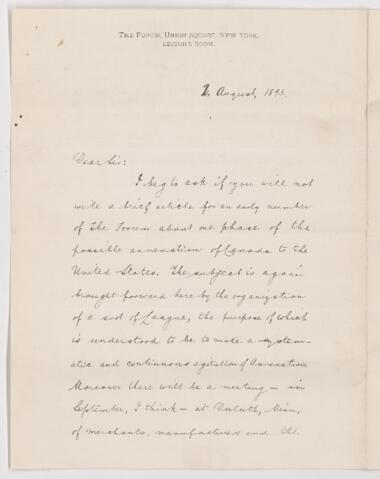 THE FORUM, UNION SQUARE, NEW YORK.
EDITOR'S ROOM.
2 August, 1893.
Dear Sir:
I beg to ask if you will not
write a brief article for an early number
of The Forum about one phase of the
possible annexation of Canada to the
United States. The subject is again
brought forward here by the organization
of a sort of League, the purpose of which
is understood to be to make a system-
atic and continuous agitation of Annexation.
Moreover there will be a meeting — in
September, I think — at Duluth, Minn,
of merchants, manufacturers and the